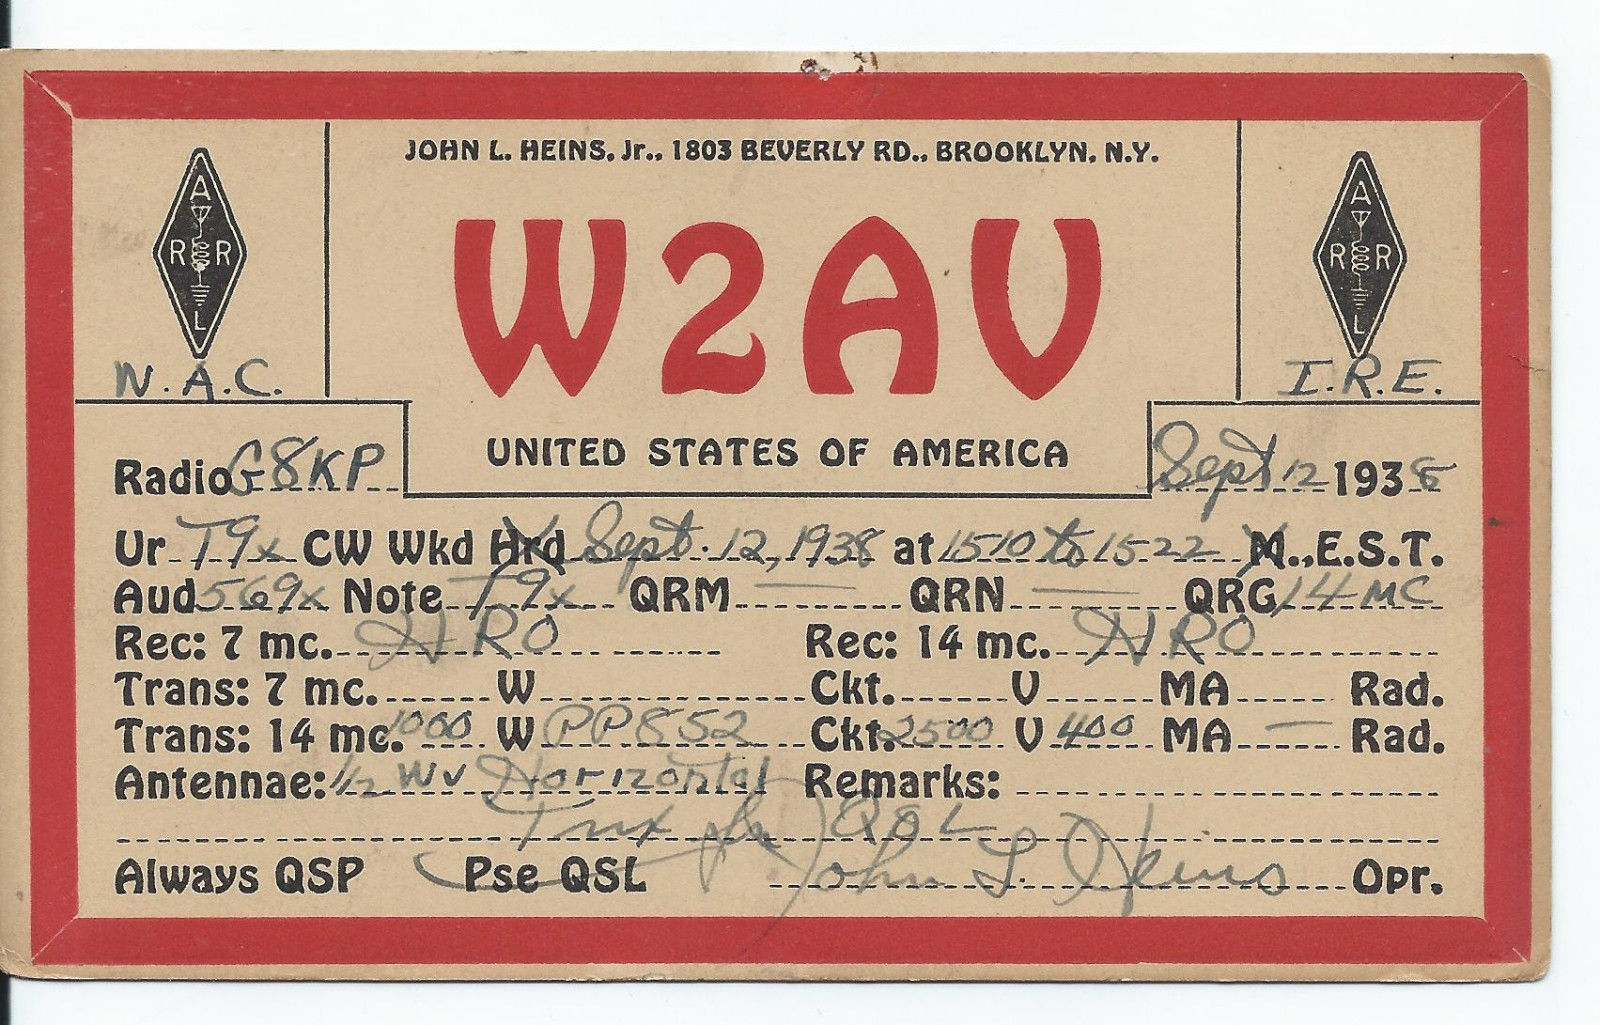 JOHN L. HEINS, Jr., 1803 BEVERLY RD., BROOKLYN, N.Y.
A R R L
A R R L
W2AV
N.A.C.
I.R.E.
UNITED STATES OF AMERICA
Radio G8KP Sept 12 1938
Ur T9x CW Wkd Hrd Sept. 12, 1938 at 1510 to 1522 M., E.S.T.
Aud 569x Note T9x QRM — QRN — QRG 14 MC
Rec: 7 mc. HRO Rec: 14 mc. HRO
Trans: 7 mc. W Ckt. V MA Rad.
Trans: 14 mc. 1000 W PP852 Ckt. 2500 V 400 MA — Rad.
Antennae: 1/2 Wv Horizontal Remarks:
Tnx fr QSL
Always QSP Pse QSL John L. Heins Opr.